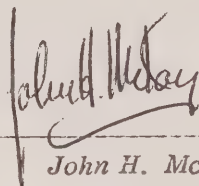 John H. McCoy
John H. Mc